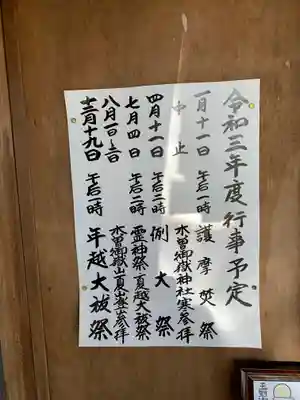 令和三年度行事予定
一月十一日 午后一時 護摩焚祭
中止 木曽御嶽神社寒参拝
四月十一日 午后二時 例大祭
七月四日 午后二時 霊神祭 夏越大祓祭
八月一日~三日 木曽御嶽山夏山登山参拝
十二月十九日 午后一時 年越大祓祭